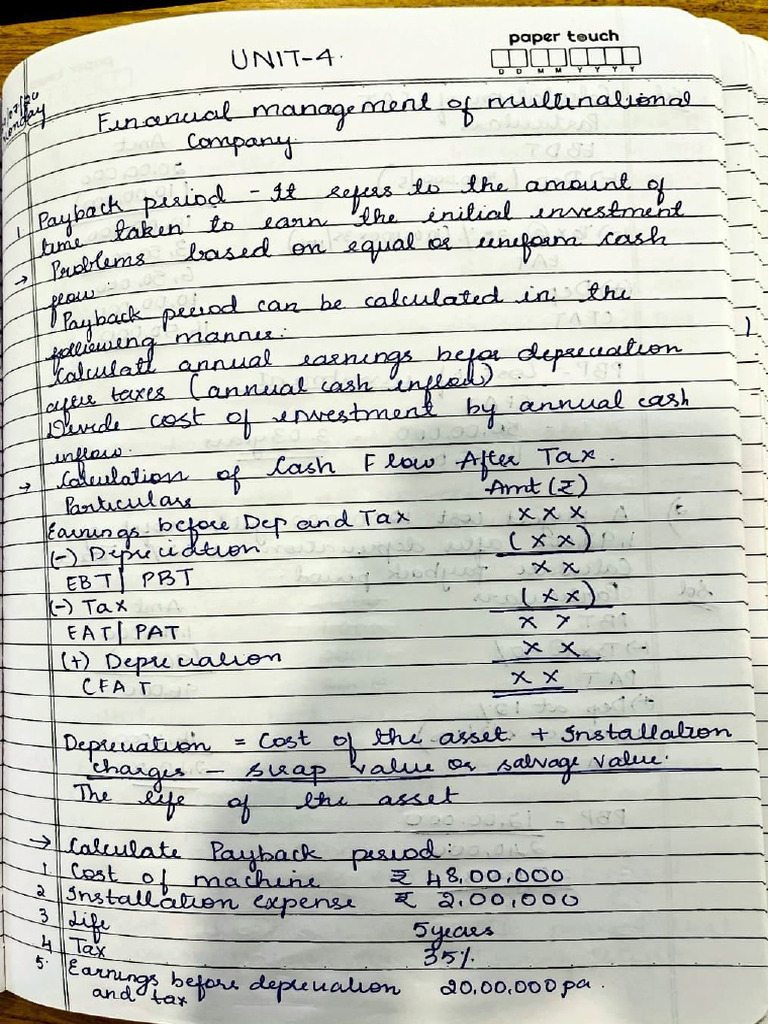 paper touch
D D M M Y Y Y Y
UNIT-4.
Monday
Financial management of multinational
Company.
1 Payback period - It refers to the amount of
time taken to earn the initial investment
→ Problems based on equal or uniform cash
flow.
Payback period can be calculated in the
following manner:
Calculate annual earnings befor depreciation
after taxes (annual cash inflow).
Divide cost of investment by annual cash
inflow.
→ Calculation of Cash Flow After Tax.
Particulars Amt (₹)
Earnings before Dep and Tax x x x
(-) Depreciation (x x)
EBT/ PBT x x
(-) Tax (x x)
EAT/ PAT x x
(+) Depreciation x x
CFAT x x
Depreciation = Cost of the asset + Installation
charges - scrap value or salvage value.
The life of the asset
→ Calculate Payback period:
1. Cost of machine ₹ 48,00,000
2 Installation expense ₹ 2,00,000
3 Life 5 years
4 Tax 35%
5. Earnings before depreciation 20,00,000 pa.
and tax